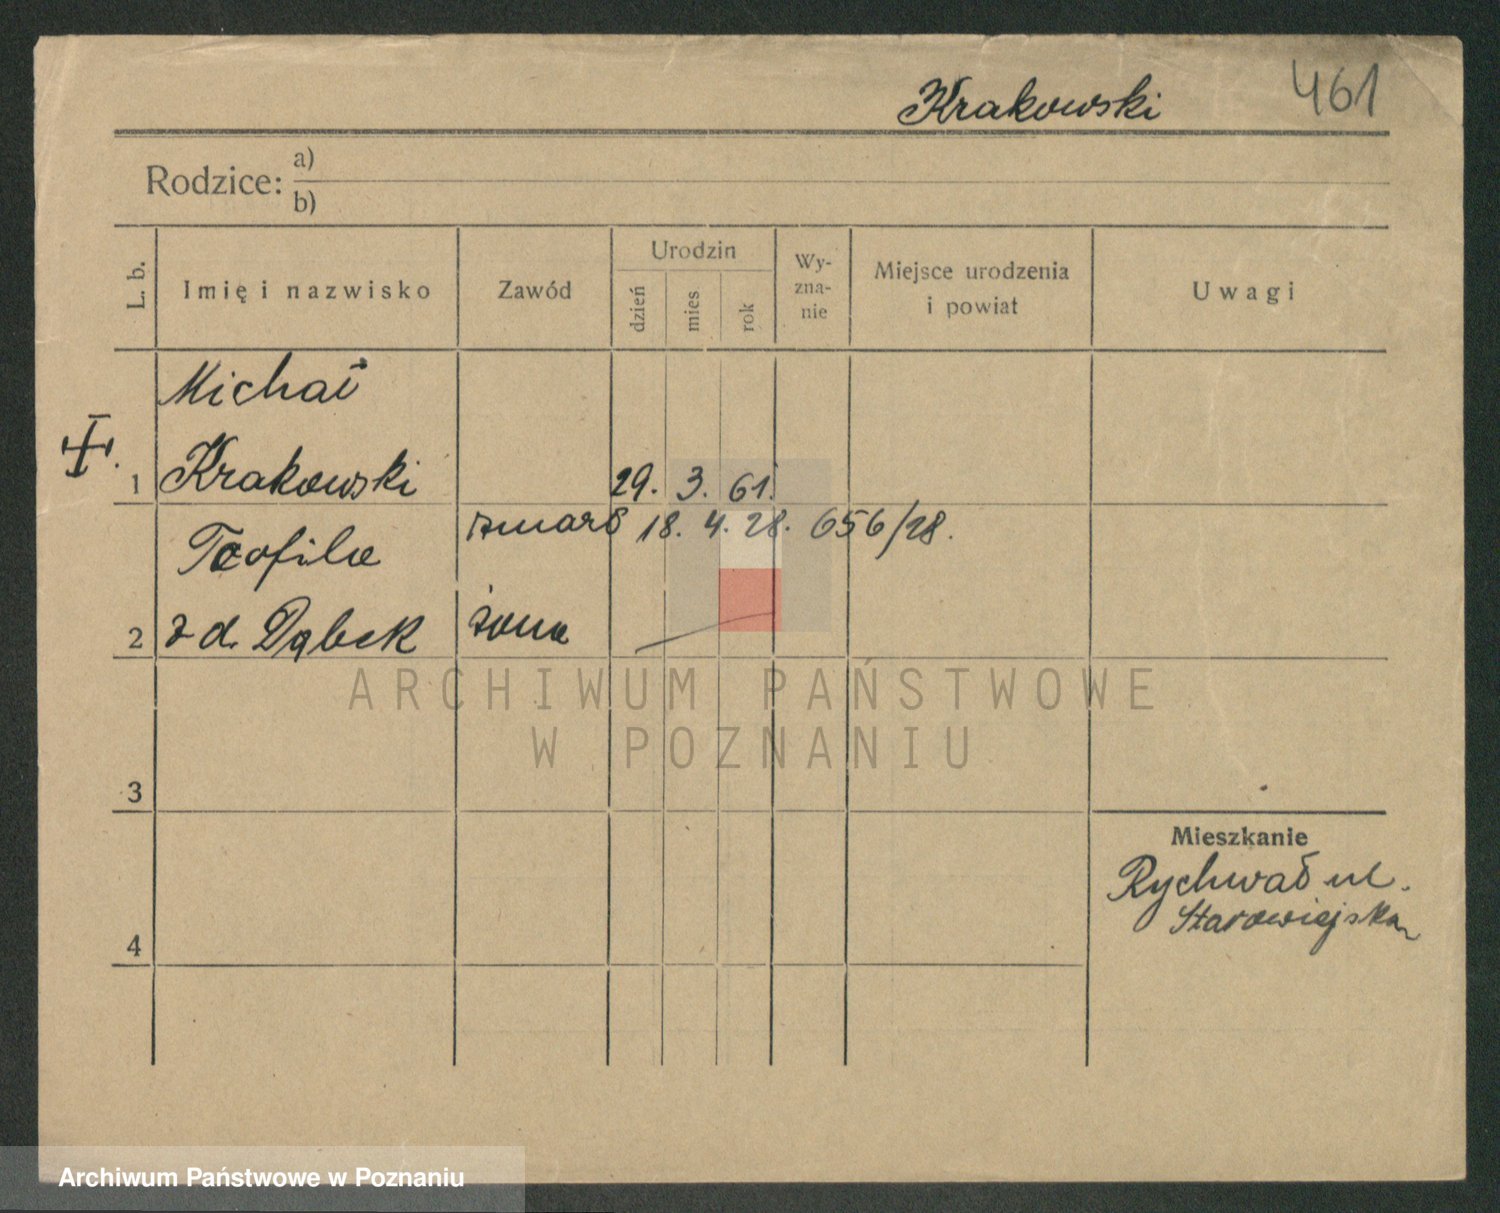 Krakowski
461
Rodzice:
a)
b)
L. b.
Imię i nazwisko
Zawód
Urodzin
dzień
mies
rok
Wy-
zna-
nie
Miejsce urodzenia
i powiat
Uwagi
Michał
1 Krakowski 29. 3. 61.
zmarł 18. 4. 28. 656/28.
Teofila
2 z d. Dąbek żona
3
4
Mieszkanie
Rychwał ul.
Starowiejska
ARCHIWUM PAŃSTWOWE
W POZNANIU
Archiwum Państwowe w Poznaniu